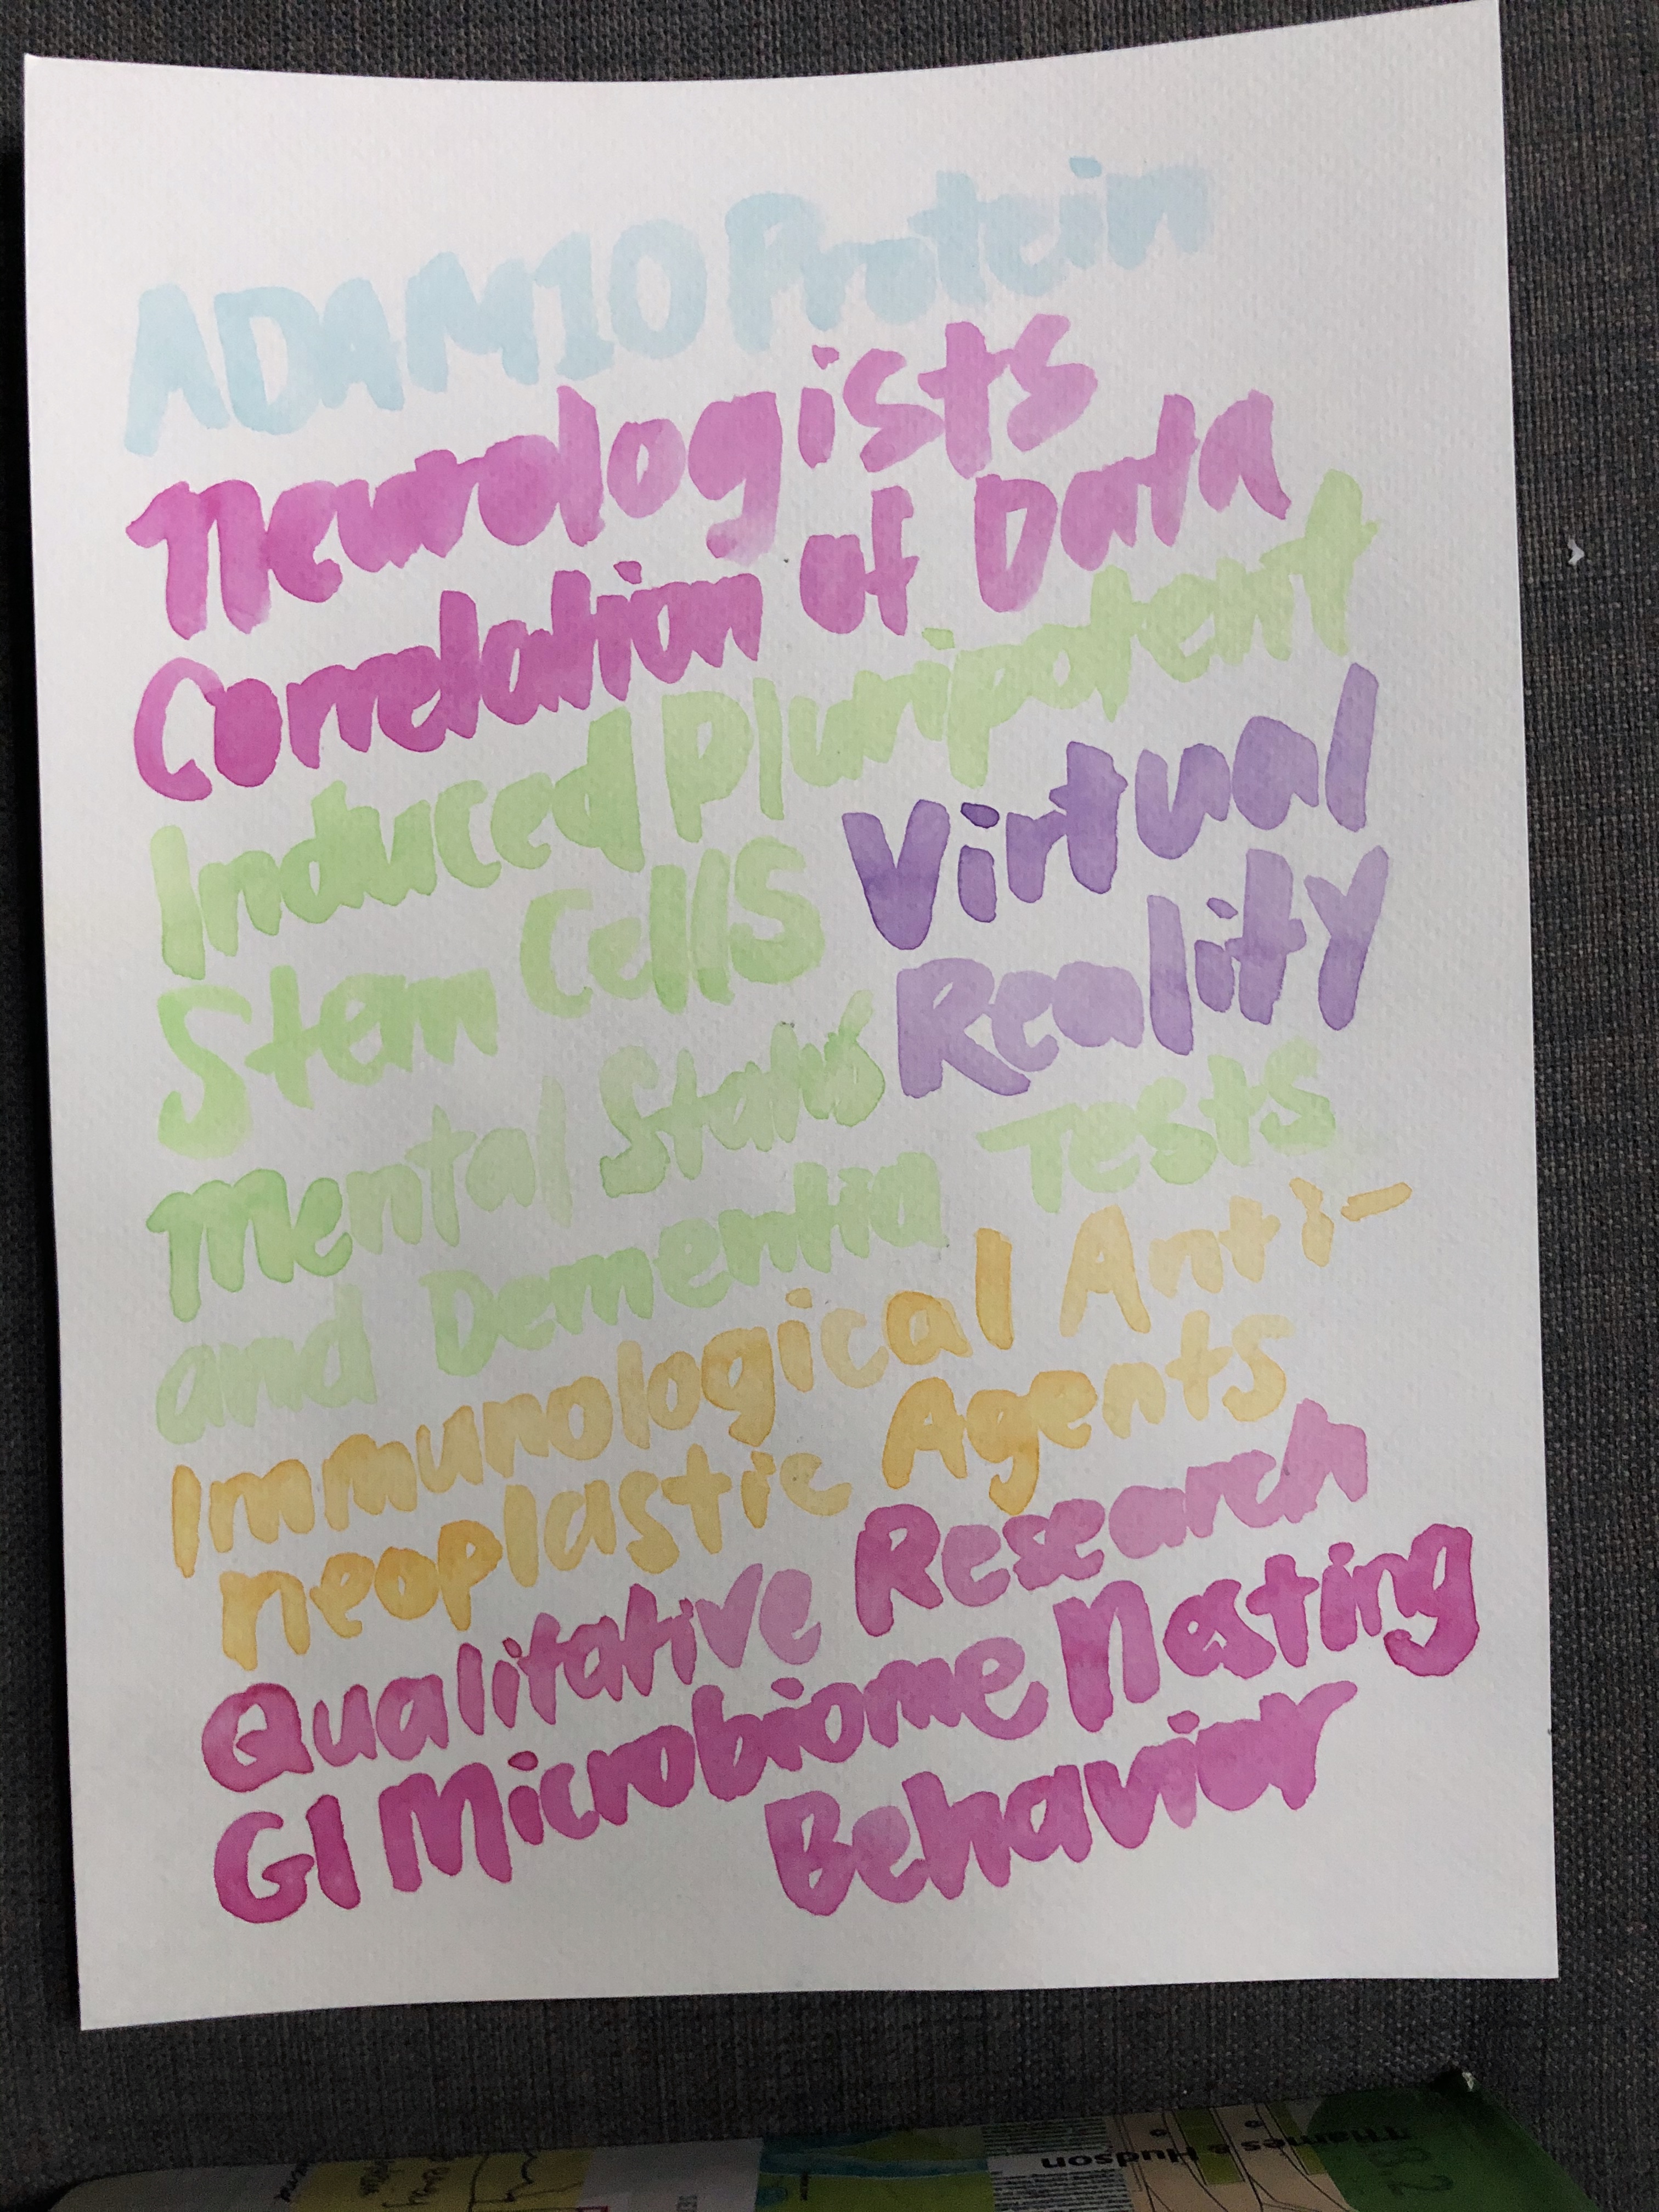 ADAM10 Protein
Neurologists
Correlation of Data
Induced Pluripotent
Stem Cells
Virtual
Reality
Mental Status
and Dementia Tests
Immunological Anti-
neoplastic Agents
Qualitative Research
GI Microbiome Nesting
Behavior
Thames & Hudson